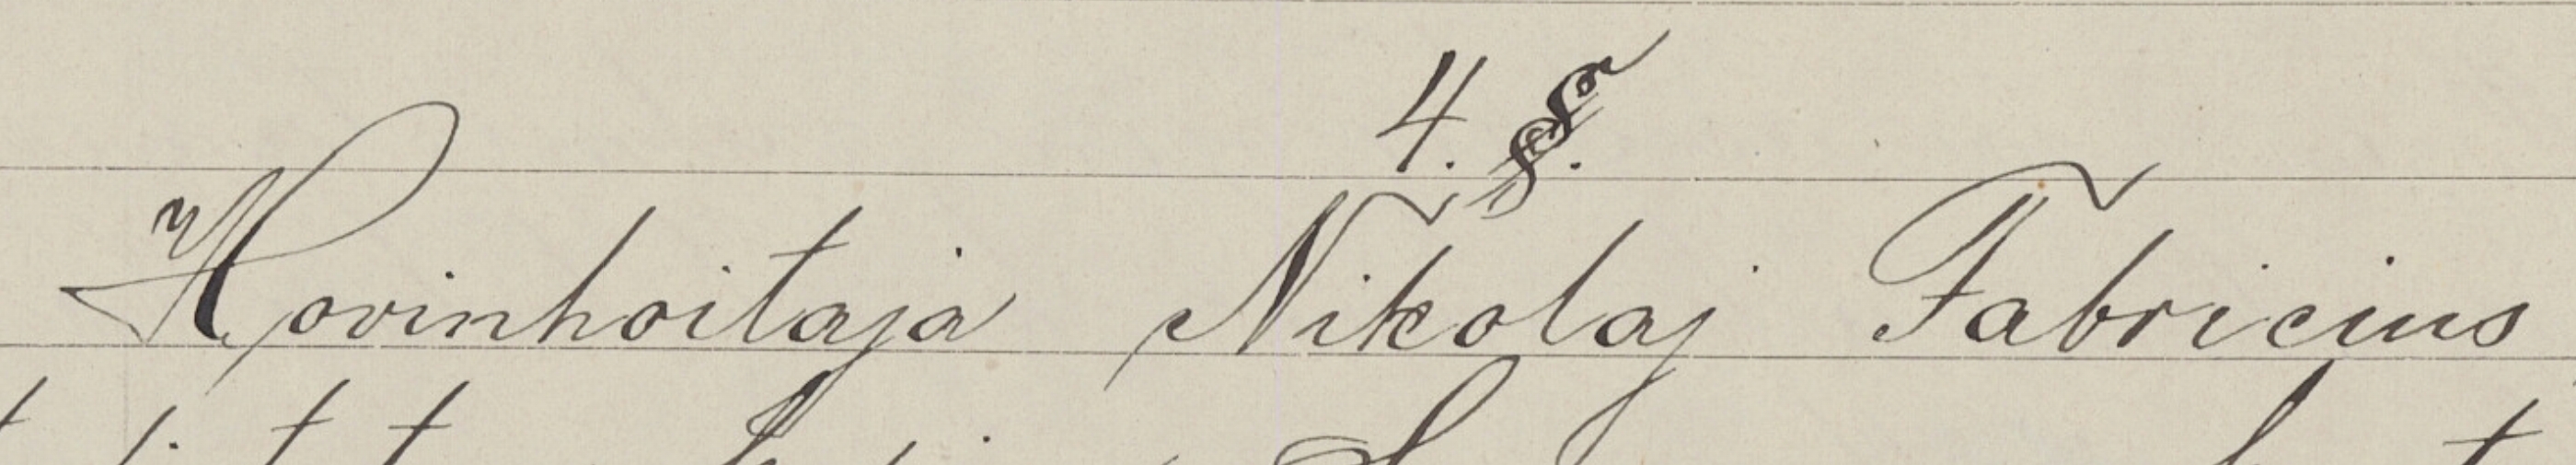 4. §.
Hovinhoitaja Nikolaj Fabricius